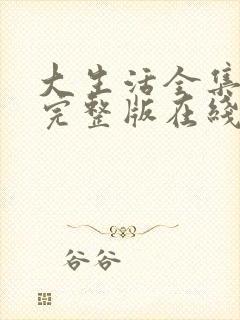 大生活全集
完整版在綫
谷谷